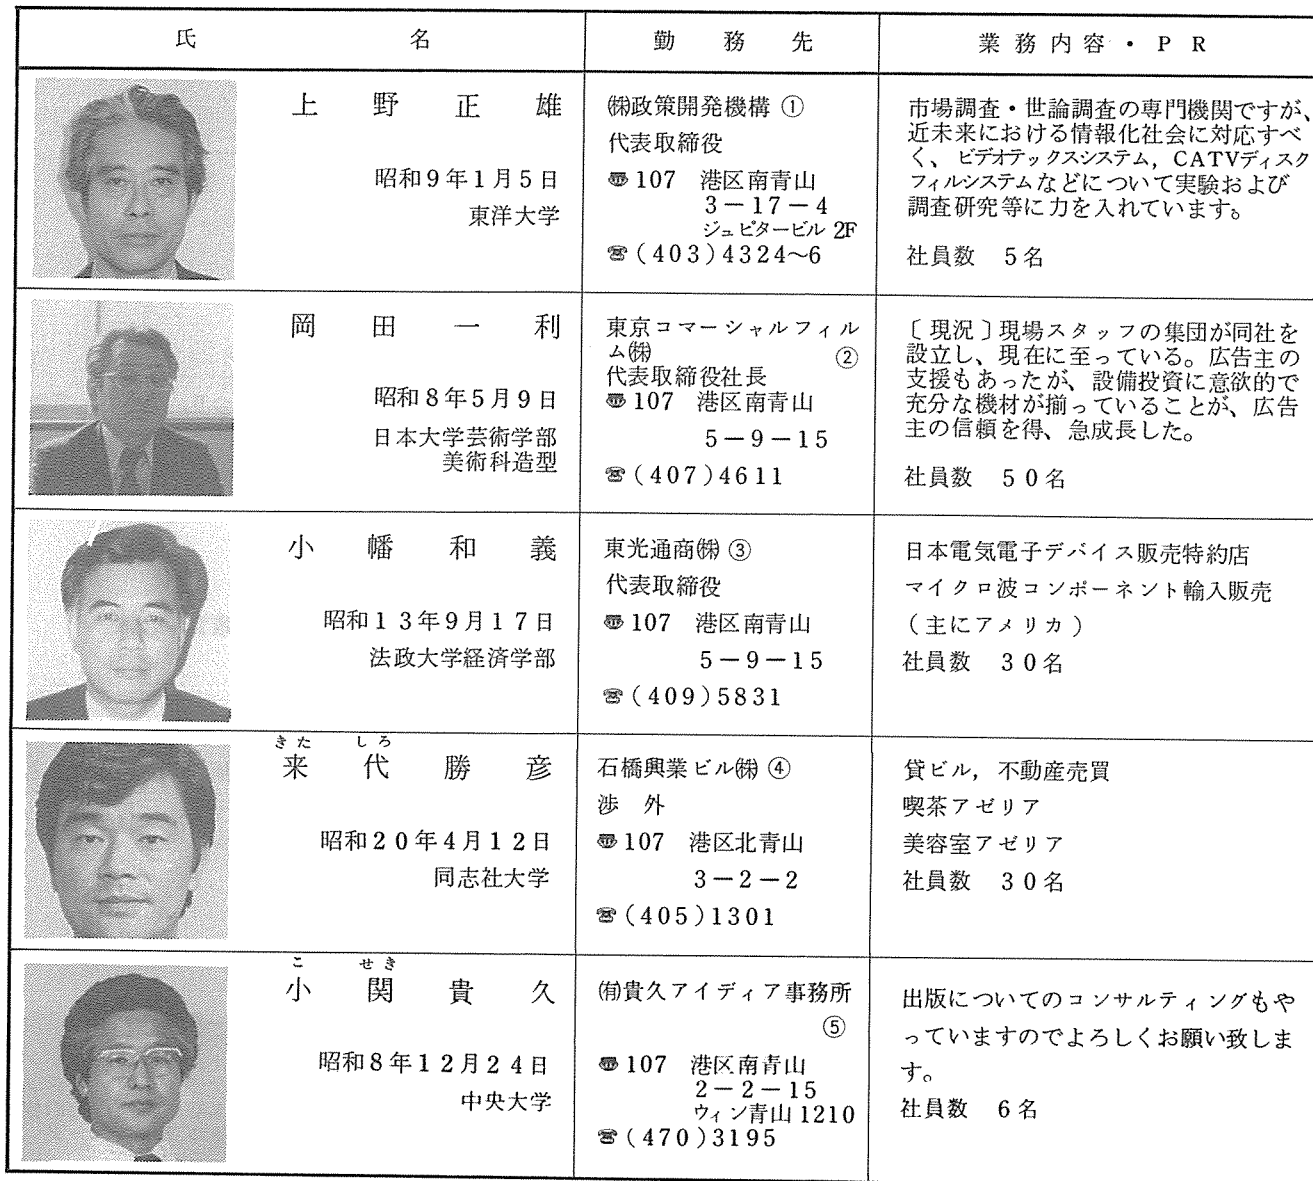 氏名 勤務先 業務内容・PR
上野正雄
昭和9年1月5日
東洋大学
㈱政策開発機構 ①
代表取締役
〠107 港区南青山
3-17-4
ジュピタービル 2F
☎(403)4324〜6
市場調査・世論調査の専門機関ですが、
近未来における情報化社会に対応すべ
く、ビデオテックスシステム, CATVディスク
フィルシステムなどについて実験および
調査研究等に力を入れています。
社員数 5名
岡田一利
昭和8年5月9日
日本大学芸術学部
美術科造型
東京コマーシャルフィル
ム㈱ ②
代表取締役社長
〠107 港区南青山
5-9-15
☎(407)4611
〔現況〕現場スタッフの集団が同社を
設立し、現在に至っている。広告主の
支援もあったが、設備投資に意欲的で
充分な機材が揃っていることが、広告
主の信頼を得、急成長した。
社員数 50名
小幡和義
昭和13年9月17日
法政大学経済学部
東光通商㈱ ③
代表取締役
〠107 港区南青山
5-9-15
☎(409)5831
日本電気電子デバイス販売特約店
マイクロ波コンポーネント輸入販売
(主にアメリカ)
社員数 30名
きた しろ
来代勝彦
昭和20年4月12日
同志社大学
石橋興業ビル㈱ ④
渉外
〠107 港区北青山
3-2-2
☎(405)1301
貸ビル, 不動産売買
喫茶アゼリア
美容室アゼリア
社員数 30名
こ せき
小関貴久
昭和8年12月24日
中央大学
㈲貴久アイディア事務所
⑤
〠107 港区南青山
2-2-15
ウィン青山1210
☎(470)3195
出版についてのコンサルティングもや
っていますのでよろしくお願い致しま
す。
社員数 6名